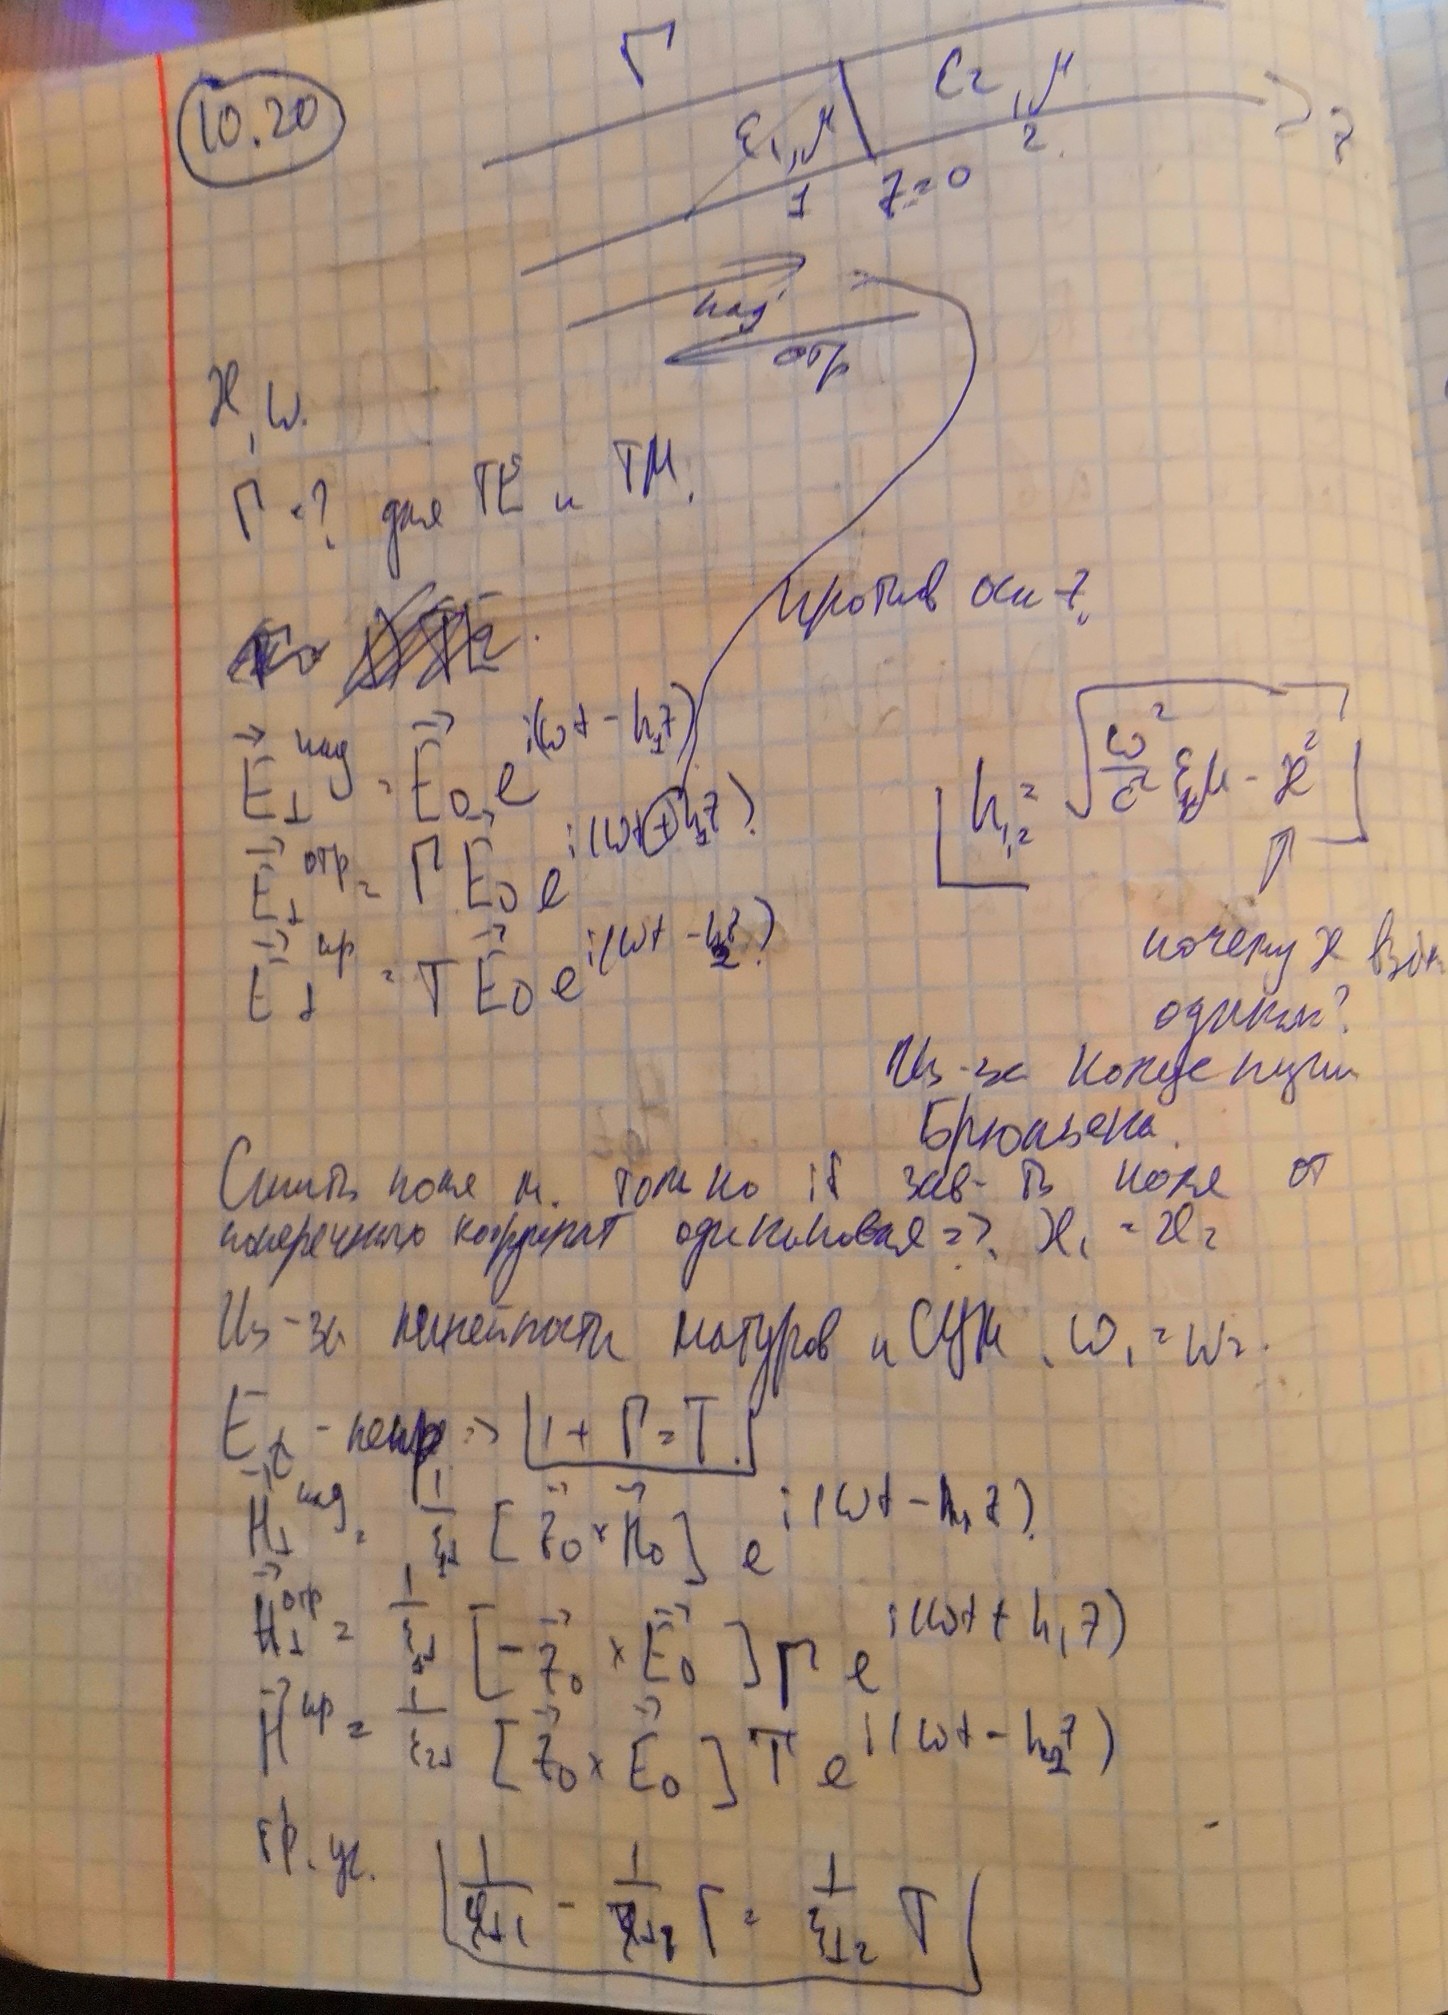 10.20
Γ
ε₁, μ
ε₂, μ
1
z=0
2
z
пад
отр
ϰ, ω.
Γ - ? для TE и TM.
против оси z
E⃗⊥^пад = E⃗₀ e^{i(ωt - h₁z)}
E⃗⊥^отр = Γ E⃗₀ e^{i(ωt + h₁z)}
E⃗⊥^пр = T E⃗₀ e^{i(ωt - h₂z)}
h₁,₂ = √(ω²/c² ε₁,₂ μ - ϰ²)
почему ϰ
одинак?
Из-за концепции
Бриллюэна.
Сшить поля м. только if зав-ть поля от
поперечных координат одинаковая => ϰ₁ = ϰ₂
Из-за линейности и ω₁ = ω₂.
E_τ - непр => 1 + Γ = T.
H⃗⊥^пад = 1/ξ⊥ [z⃗₀ × H⃗₀] e^{i(ωt - h₁z)}
H⃗⊥^отр = 1/ξ⊥ [-z⃗₀ × E⃗₀] Γ e^{i(ωt + h₁z)}
H⃗^пр = 1/ξ₂⊥ [z⃗₀ × E⃗₀] T e^{i(ωt - h₂z)}
гр. ус.
1/ξ⊥₁ - 1/ξ⊥₁ Γ = 1/ξ⊥₂ T